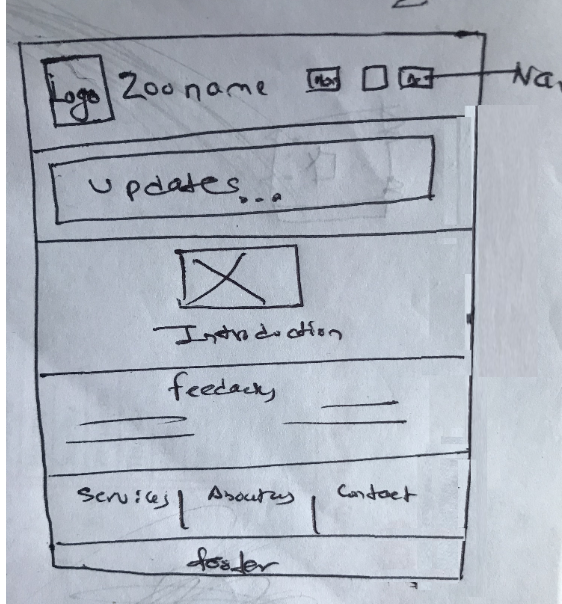 Logo Zoo name
updates...
Introduction
feedacks
Services Aboutus Contact
footer